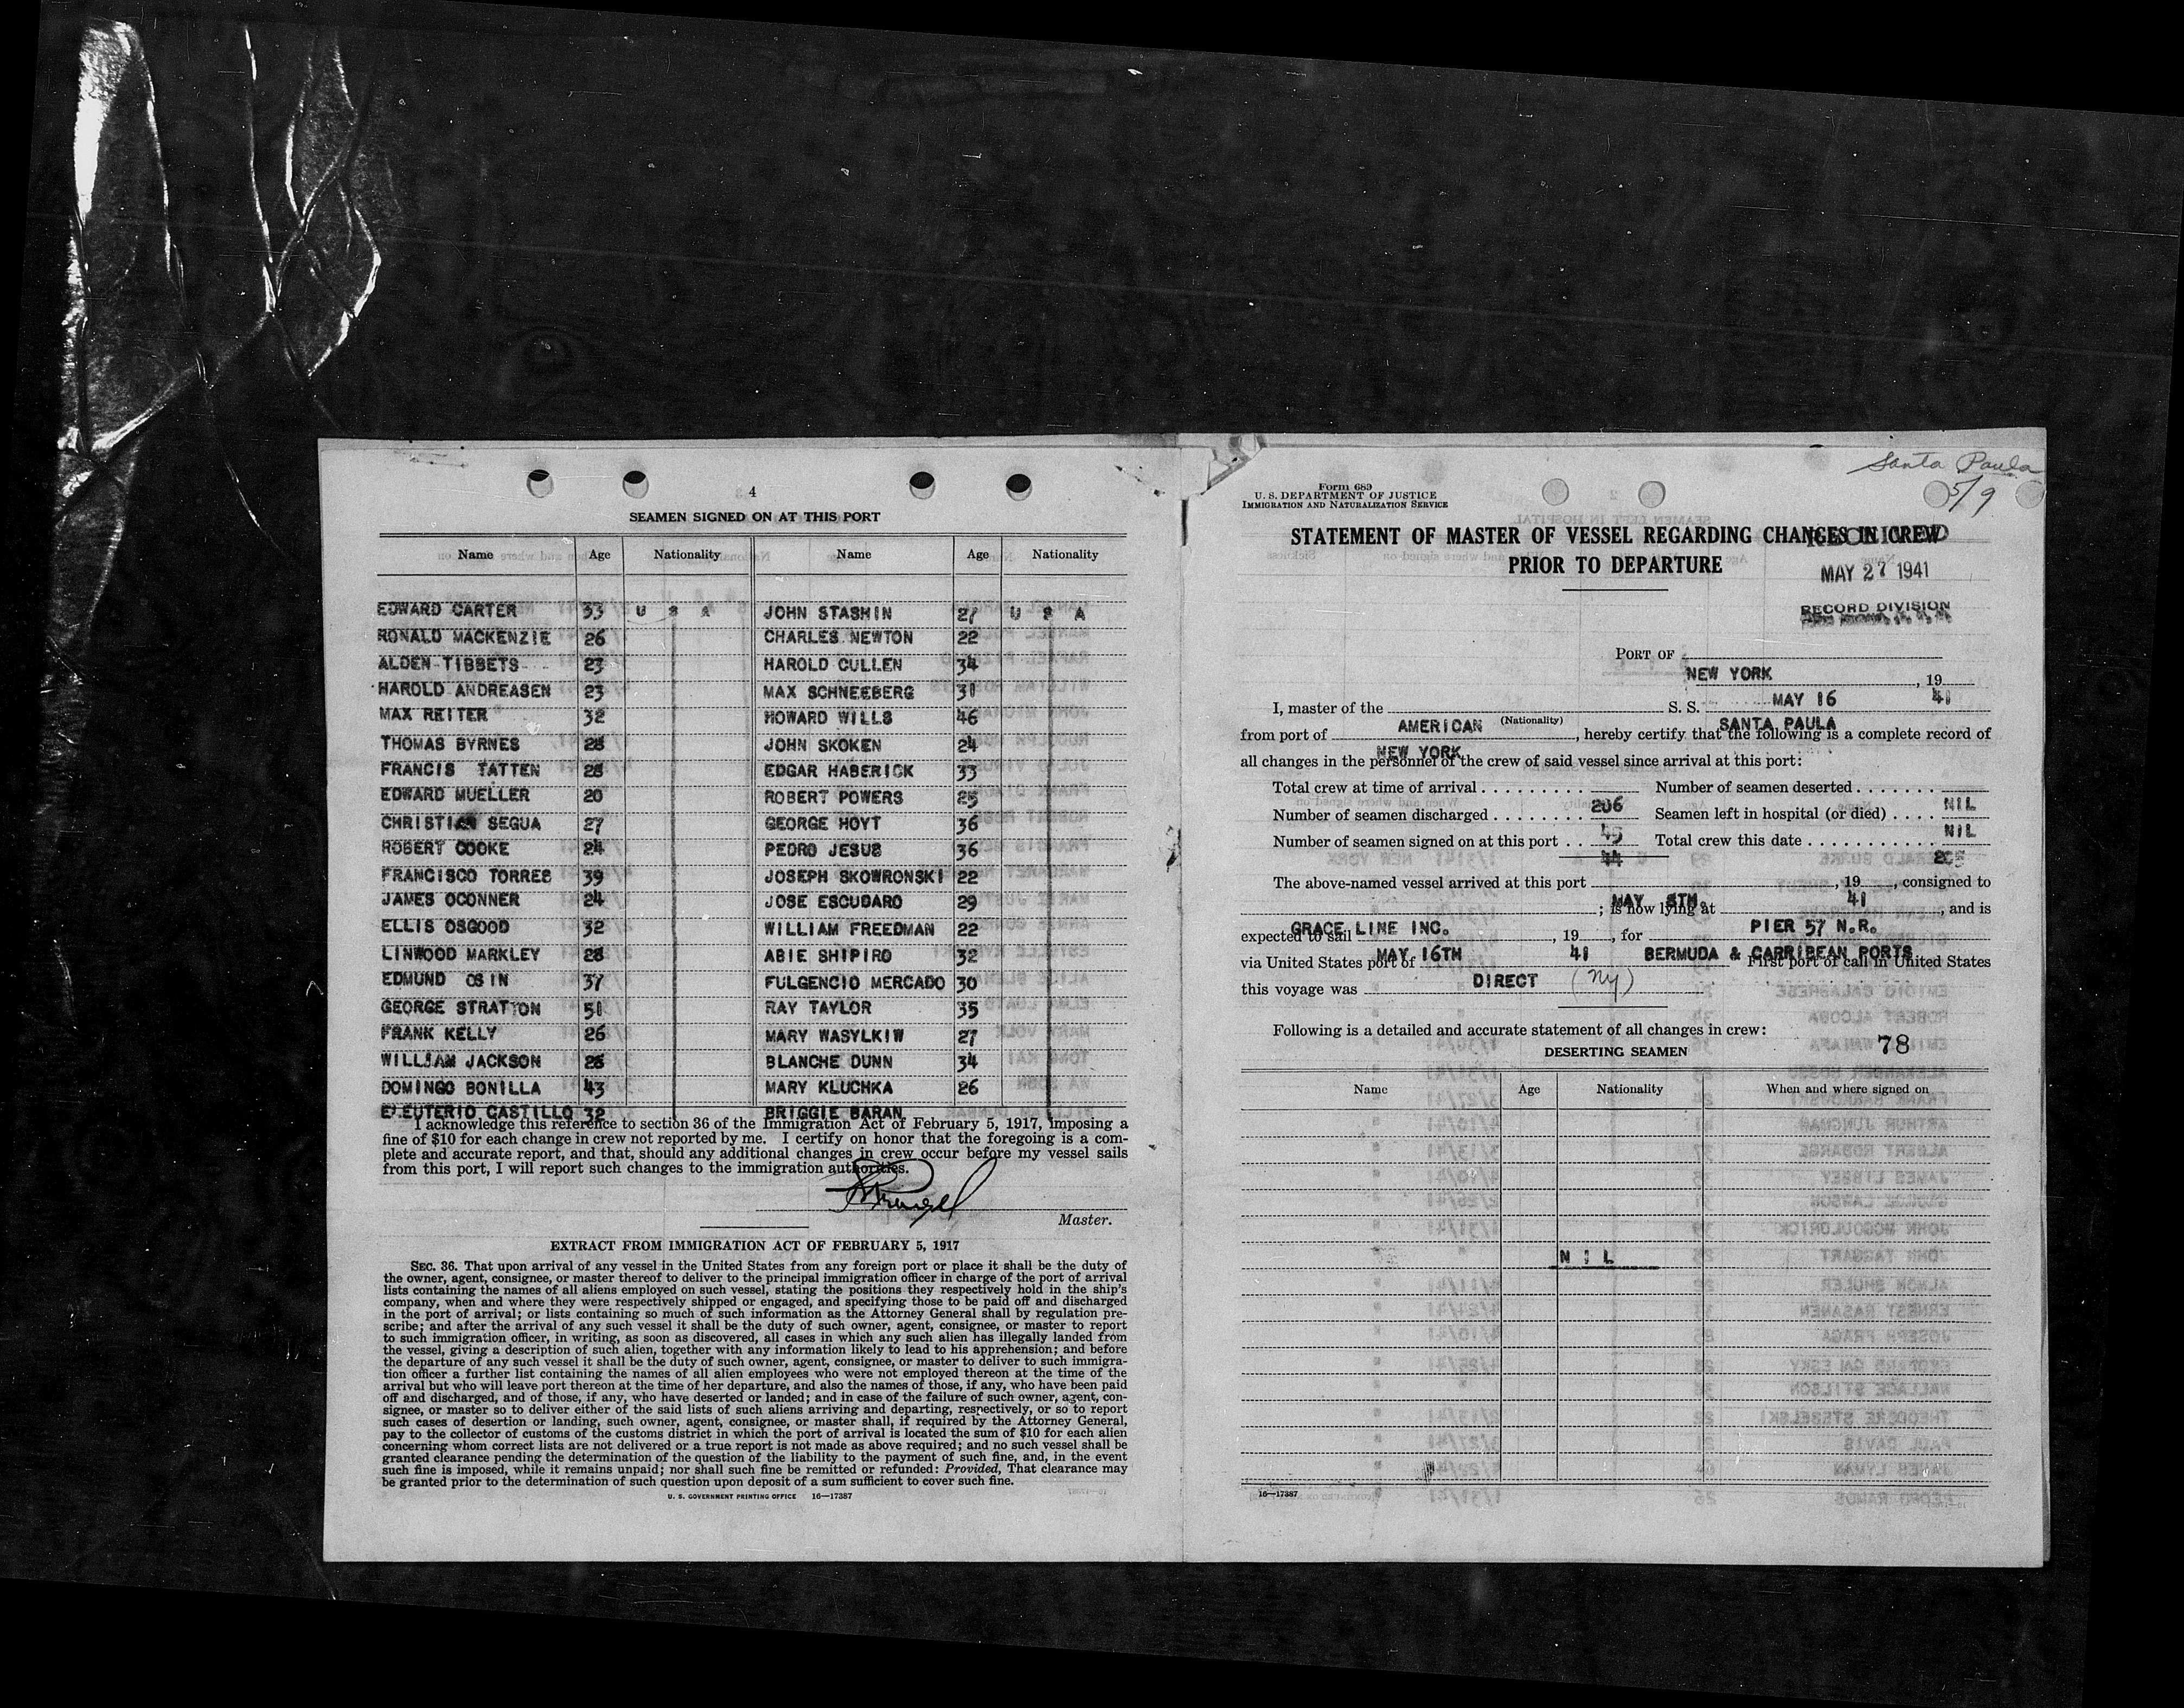 4
SEAMEN SIGNED ON AT THIS PORT
Name Age Nationality Name Age Nationality
EDWARD CARTER 33 U S A JOHN STASHIN 27 U S A
RONALD MACKENZIE 26 CHARLES NEWTON 22
ALDEN TIBBETS 23 HAROLD CULLEN 34
HAROLD ANDREASEN 23 MAX SCHNEEBERG 31
MAX REITER 32 HOWARD WILLS 46
THOMAS BYRNES JOHN SKOKEN 24
FRANCIS TATTEN 28 EDGAR HABERICK 33
EDWARD MUELLER 20 ROBERT POWERS 25
CHRISTIAN SEGUA 27 GEORGE HOYT 36
ROBERT COOKE 24 PEDRO JESUS 36
FRANCISCO TORRES 39 JOSEPH SKOWRONSKI 22
JAMES OCONNER 24 JOSE ESCUDARO 29
ELLIS OSGOOD 32 WILLIAM FREEDMAN 22
LINWOOD MARKLEY 28 ABIE SHIPIRO 32
EDMUND OSIN 37 FULGENCIO MERCADO 30
GEORGE STRATTON 51 RAY TAYLOR 35
FRANK KELLY 26 MARY WASYLKIW 27
WILLIAM JACKSON BLANCHE DUNN 34
DOMINGO BONILLA 43 MARY KLUCHKA 26
ELEUTERIO CASTILLO 32 BRIGGIE BARAN
I acknowledge this reference to section 36 of the Immigration Act of February 5, 1917, imposing a
fine of $10 for each change in crew not reported by me. I certify on honor that the foregoing is a com-
plete and accurate report, and that, should any additional changes in crew occur before my vessel sails
from this port, I will report such changes to the immigration authorities.
Master.
EXTRACT FROM IMMIGRATION ACT OF FEBRUARY 5, 1917
SEC. 36. That upon arrival of any vessel in the United States from any foreign port or place it shall be the duty of
the owner, agent, consignee, or master thereof to deliver to the principal immigration officer in charge of the port of arrival
lists containing the names of all aliens employed on such vessel, stating the positions they respectively hold in the ship's
company, when and where they were respectively shipped or engaged, and specifying those to be paid off and discharged
in the port of arrival; or lists containing so much of such information as the Attorney General shall by regulation pre-
scribe; and after the arrival of any such vessel it shall be the duty of such owner, agent, consignee, or master to report
to such immigration officer, in writing, as soon as discovered, all cases in which any such alien has illegally landed from
the vessel, giving a description of such alien, together with any information likely to lead to his apprehension; and before
the departure of any such vessel it shall be the duty of such owner, agent, consignee, or master to deliver to such immigra-
tion officer a further list containing the names of all alien employees who were not employed thereon at the time of the
arrival but who will leave port thereon at the time of her departure, and also the names of those, if any, who have been paid
off and discharged, and of those, if any, who have deserted or landed; and in case of the failure of such owner, agent, con-
signee, or master so to deliver either of the said lists of such aliens arriving and departing, respectively, or so to report
such cases of desertion or landing, such owner, agent, consignee, or master shall, if required by the Attorney General,
pay to the collector of customs of the customs district in which the port of arrival is located the sum of $10 for each alien
concerning whom correct lists are not delivered or a true report is not made as above required; and no such vessel shall be
granted clearance pending the determination of the question of the liability to the payment of such fine, and, in the event
such fine is imposed, while it remains unpaid; nor shall such fine be remitted or refunded: Provided, That clearance may
be granted prior to the determination of such question upon deposit of a sum sufficient to cover such fine.
U. S. GOVERNMENT PRINTING OFFICE 16—17387
Santa Paula
5/9
Form 689
U. S. DEPARTMENT OF JUSTICE
IMMIGRATION AND NATURALIZATION SERVICE
STATEMENT OF MASTER OF VESSEL REGARDING CHANGES IN CREW
PRIOR TO DEPARTURE
MAY 27 1941
RECORD DIVISION
PORT OF
NEW YORK , 19
MAY 16 41
I, master of the S. S.
AMERICAN (Nationality) SANTA PAULA
from port of , hereby certify that the following is a complete record of
NEW YORK
all changes in the personnel of the crew of said vessel since arrival at this port:
Total crew at time of arrival Number of seamen deserted
206 NIL
Number of seamen discharged Seamen left in hospital (or died)
45 NIL
Number of seamen signed on at this port Total crew this date
44 205
The above-named vessel arrived at this port , 19 , consigned to
MAY 5TH. 41
; is now lying at , and is
GRACE LINE INC. PIER 57 N.R.
expected to sail , 19 , for
MAY 16TH 41 BERMUDA & CARRIBEAN PORTS
via United States port of First port of call in United States
this voyage was DIRECT (NY)
Following is a detailed and accurate statement of all changes in crew:
78
DESERTING SEAMEN
Name Age Nationality When and where signed on
N I L
16—17387